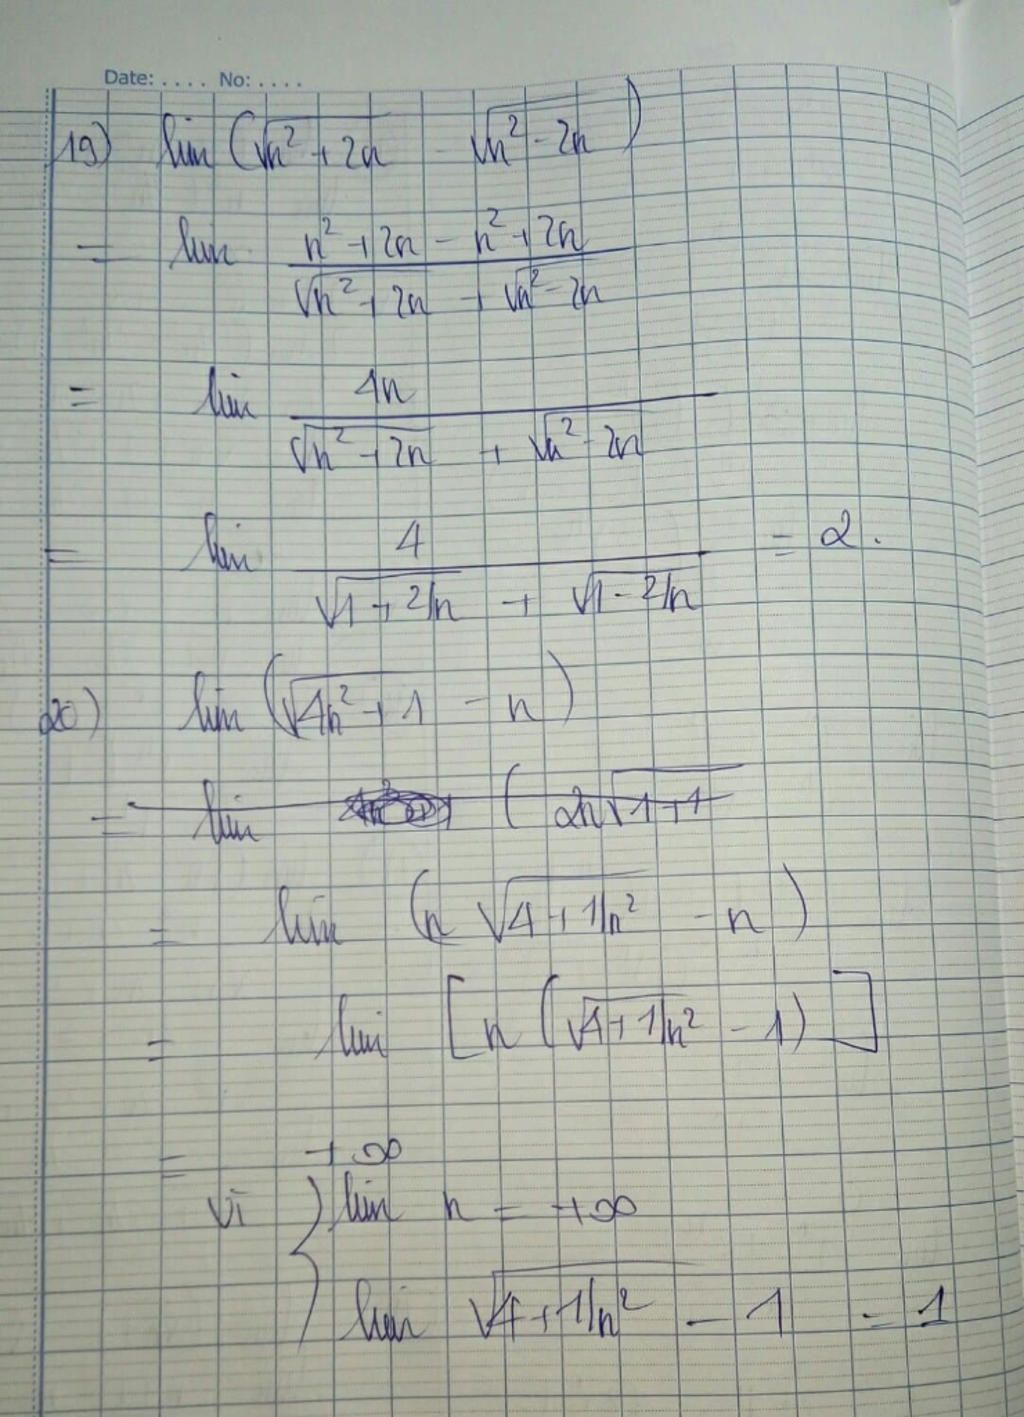 Date: .... No: ....
19) lim (√(n² + 2n) - √(n² - 2n))
= lim (n² + 2n - n² + 2n) / (√(n² + 2n) + √(n² - 2n))
= lim 4n / (√(n² + 2n) + √(n² - 2n))
= lim 4 / (√(1 + 2/n) + √(1 - 2/n)) = 2.
20) lim (√(4n² + 1) - n)
= lim ( 2n√(1 + 1
= lim (n √(4 + 1/n²) - n)
= lim [n (√(4 + 1/n²) - 1)]
= +∞
vì { lim n = +∞
lim √(4 + 1/n²) - 1 = 1